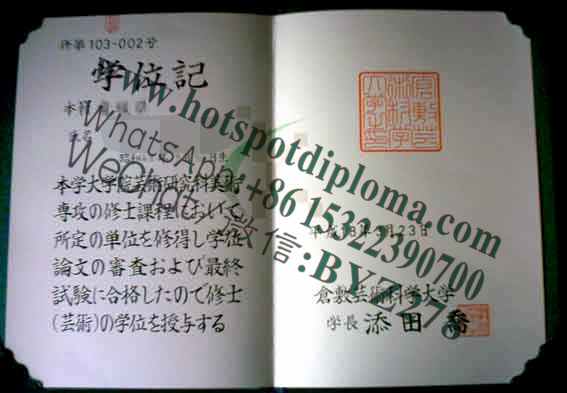 修第103-002号
学位記
本籍
氏名
本学大学院芸術研究科美術
専攻の修士課程において
所定の単位を修得し学位
論文の審査および最終
試験に合格したので修士
(芸術)の学位を授与する
平成18年3月23日
倉敷芸術科学大学
学長 添田 喬
www.hotspotdiploma.com
WhatsApp:+86 15322390700
WeChat/微信:BYZ278